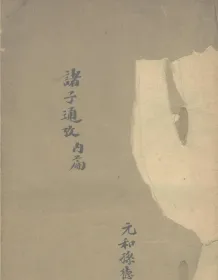 諸子通攷內篇
元和孫德